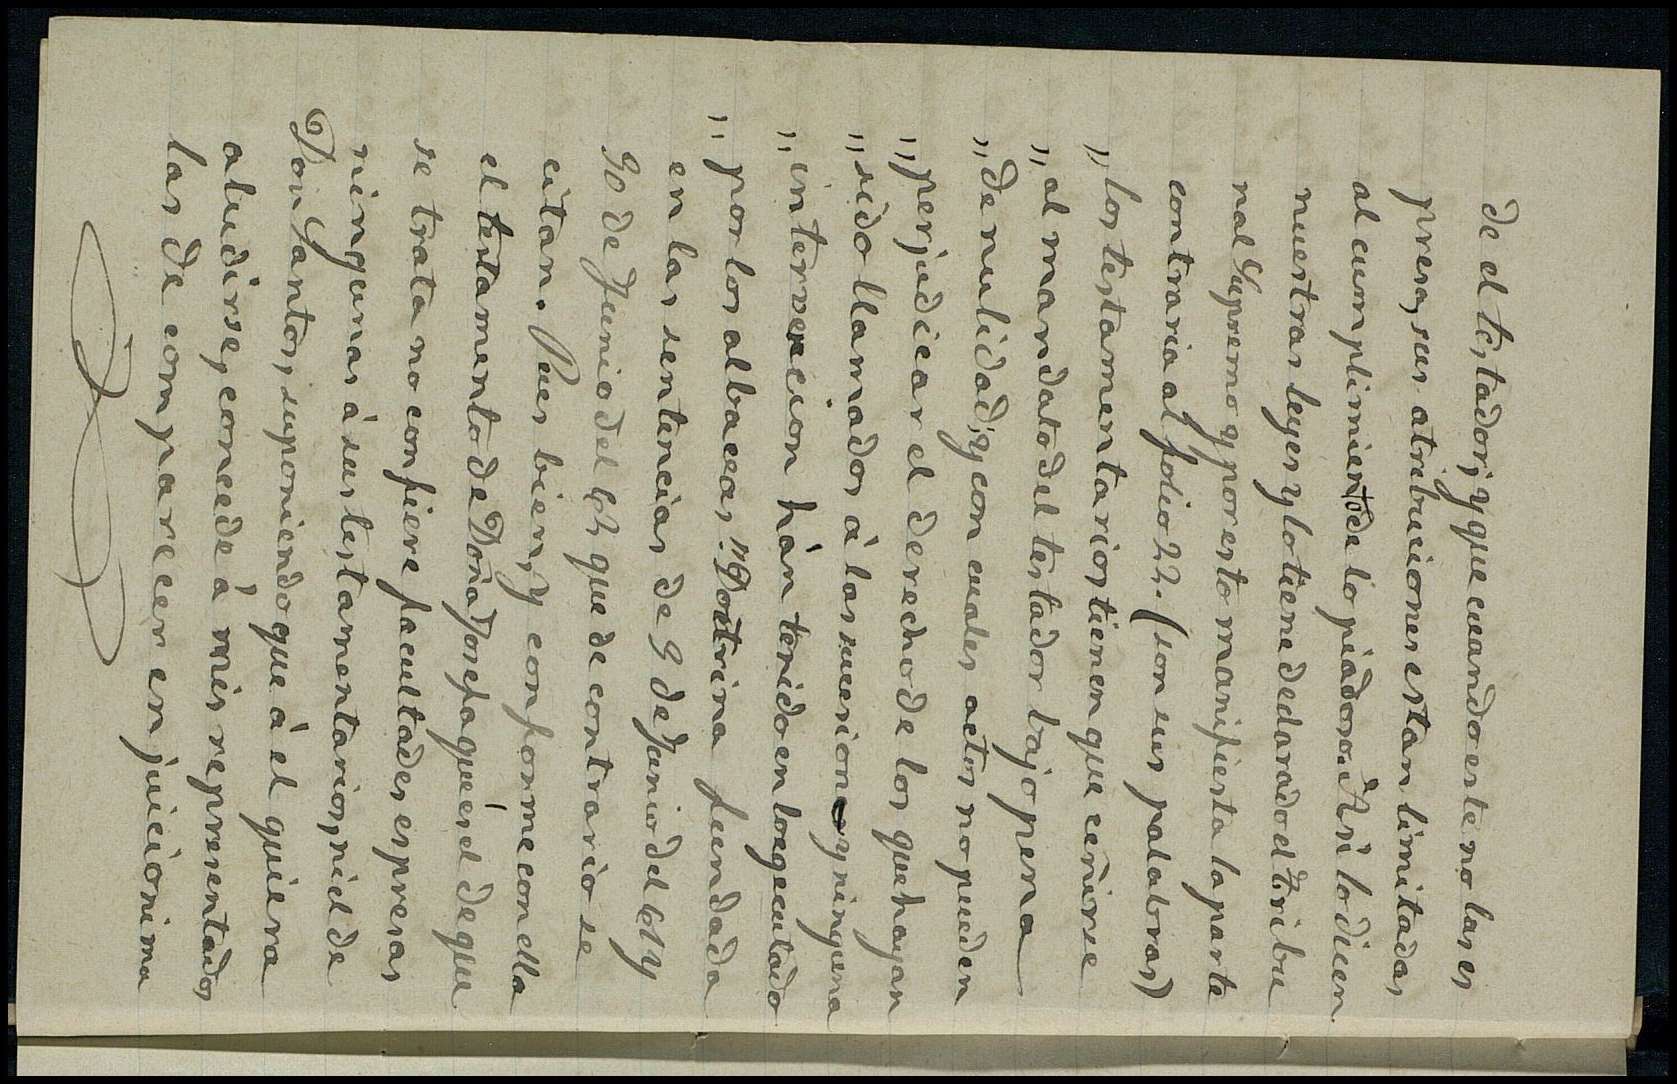 de el testador; y que cuando este no las es
presa, sus atribuciones estan limitadas
al cumplimiento de lo piadoso. Asi lo dicen
nuestras leyes y lo tiene declarado el Tribu
nal Supremo y por esto manifiesta la parte
contraria al folio 22. (son sus palabras)
"los testamentarios tienen que ceñirse
"al mandato del testador bajo pena
"de nulidad; y con cuales actos no pueden
"perjudicar el derecho de los que hayan
"sido llamados á las sucesiones y ninguna
"intervencion hán tenido en lo egecutado
"por los albaceas." Doctrina fundada
en las sentencias de 9 de Junio del 64 y
30 de Junio del 62 que de contrario se
citan. Pues bien, y conforme con ella
el testamento de Doña Josefa que és el de que
se trata no confiere facultades espresas
ningunas á sus testamentarios, ni el de
Don Santos, suponiendo que á el quiera
aludirse, concede á mis representados
las de comparecer en juicio ni ma